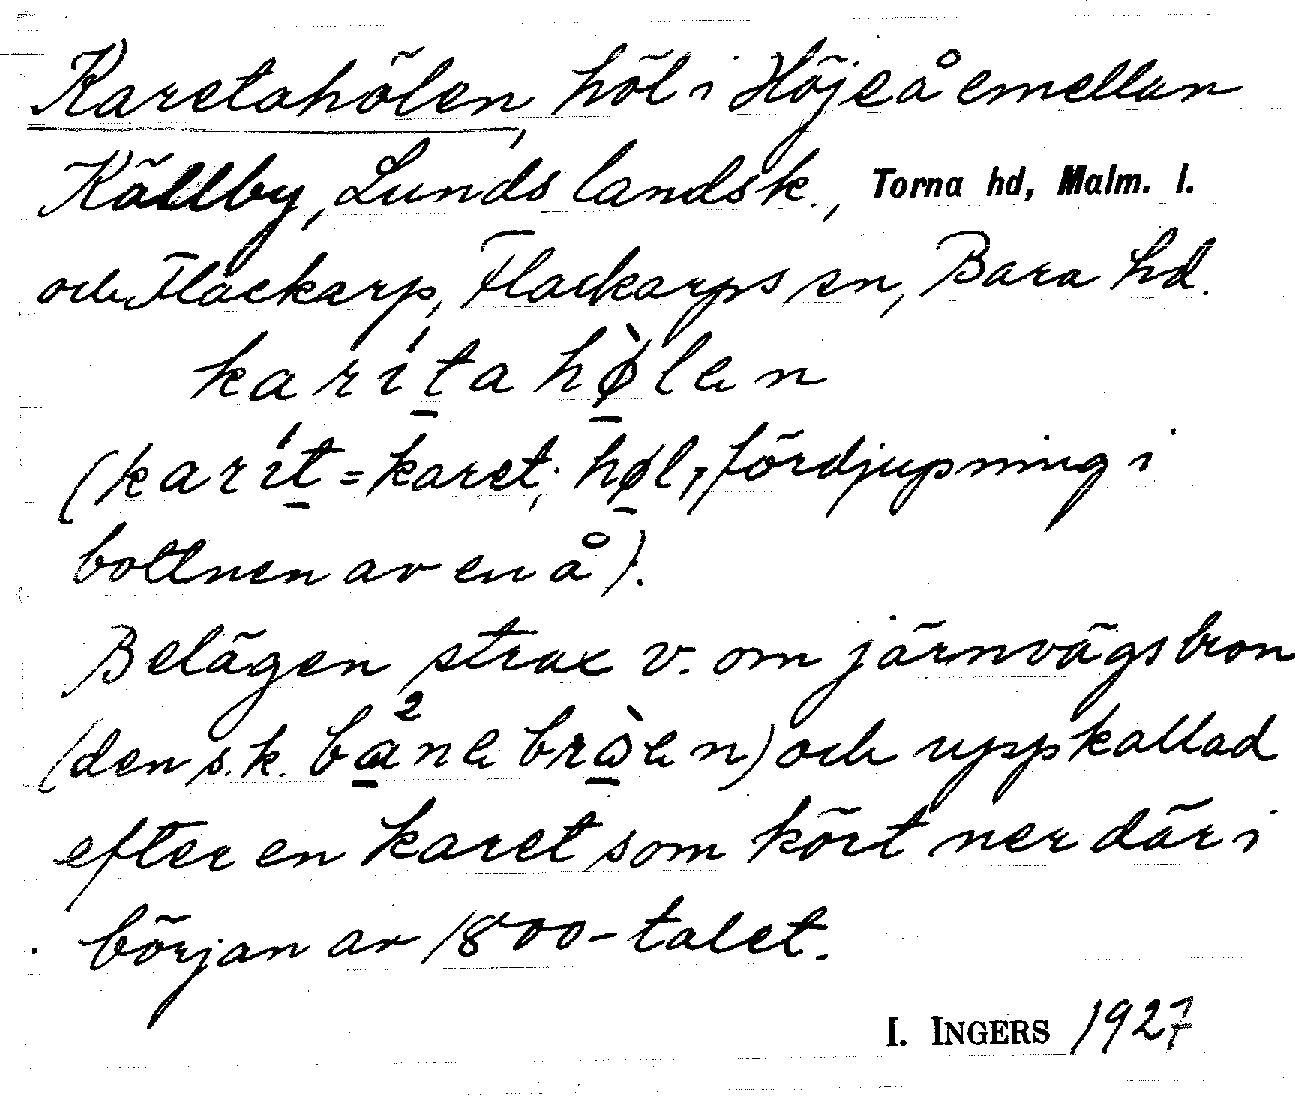 Karetahölen, höl i Höjeå emellan
Källby, Lunds landsk., Torna hd, Malm. l.
och Flackarp, Flackarps sn, Bara hd.
karíta hø̀len
(karít = karet; høl, fördjupning i
bottnen av en å).
Belägen strax v. om järnvägsbron
(den s.k. ba²ne bròen) och uppkallad
efter en karet som kört ner där i
början av 1800-talet.
I. INGERS 1927